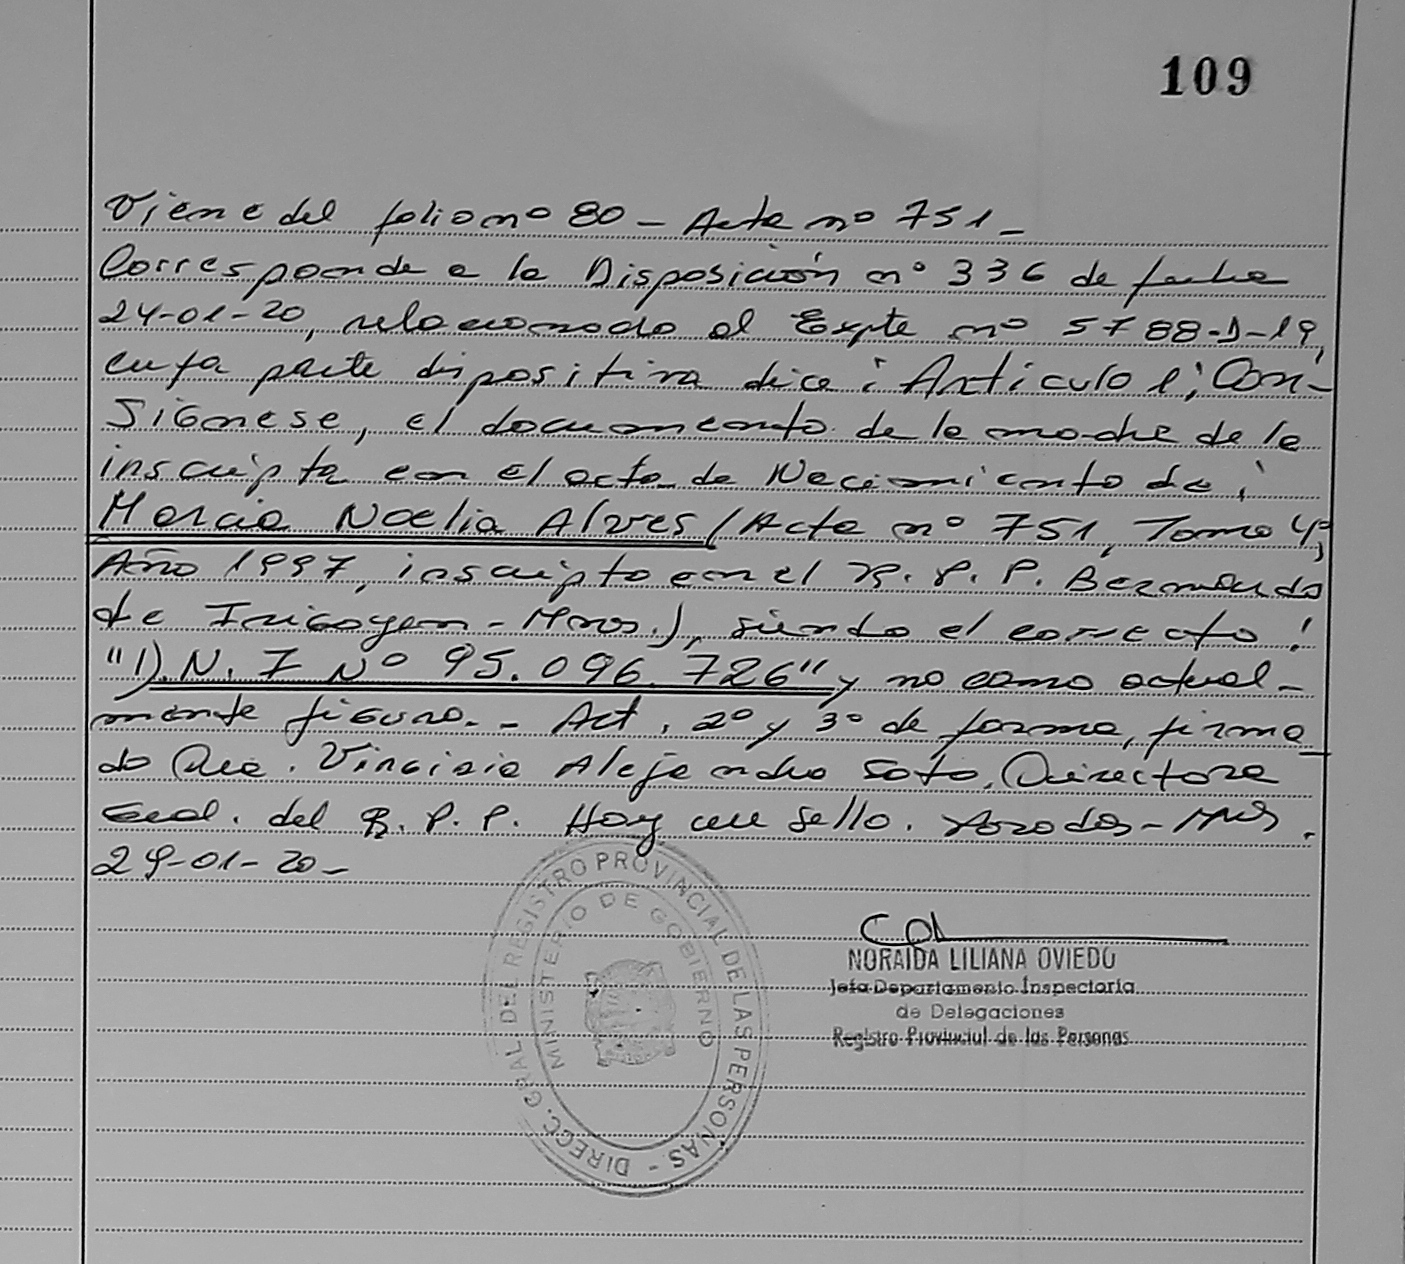 109
Viene del folio nº 80 - Acta nº 751_
Corresponde a la Disposición nº 336 de fecha
24-01-20, relacionado al Expte nº 5788-D-19,
cuya parte dispositiva dice: Artículo 1; Con-
signese, el documento de la madre de la
inscripta en el acta de Nacimiento de:
Marcia Noelia Alves (Acta nº 751, Tomo 4º,
Año 1997, inscripto en el R. P. P. Bernardo
de Irigoyen - Mnes.), siendo el correcto:
"D.N.I Nº 95.096.726" y no como actual-
mente figura.- Art. 2º y 3º de forma, firma
do Alejandra Soto, Directora
Gral. del R. P. P. Hay un sello. Posadas - Mnes.
29-01-20_
NORAIDA LILIANA OVIEDO
Jefa Departamento Inspectoría
de Delegaciones
Registro Provincial de las Personas
DIRECC. GRAL DEL REGISTRO PROVINCIAL DE LAS PERSONAS -
MINISTERIO DE GOBIERNO